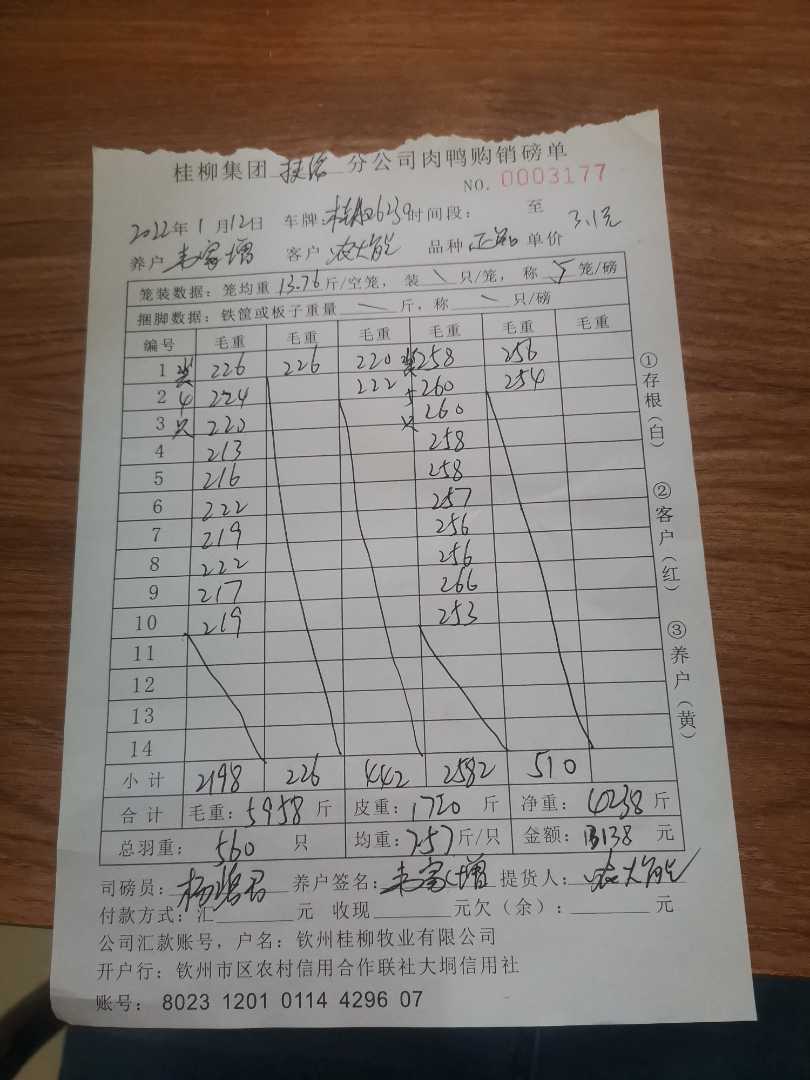 桂柳集团 扶绥 分公司肉鸭购销磅单
NO. 0003177
2022年1月12日 车牌: 6239 时间段: 至
养户 韦家增 客户 农大能 品种 单价 3.1元
笼装数据: 笼均重 13.76 斤/空笼, 装 \ 只/笼, 称 5 笼/磅
捆脚数据: 铁筐或板子重量 \ 斤, 称 \ 只/磅
编号 毛重 毛重 毛重 毛重 毛重 毛重
1 装 226 226 220 装 258 256
2 4 224 222 5 260 254
3 只 220 只 260
4 213 258
5 216 258
6 222 257
7 219 256
8 222 256
9 217 266
10 219 253
11
12
13
14
小计 2198 226 442 2582 510
合计 毛重: 5958 斤 皮重: 1720 斤 净重: 4238 斤
总羽重: 560 只 均重: 7.57 斤/只 金额: 13138 元
司磅员: 养户签名: 韦家增 提货人: 农大能
付款方式: 汇 元 收现 元欠(余): 元
公司汇款账号, 户名: 钦州桂柳牧业有限公司
开户行: 钦州市区农村信用合作联社大垌信用社
账号: 8023 1201 0114 4296 07
①存根(白)
②客户(红)
③养户(黄)